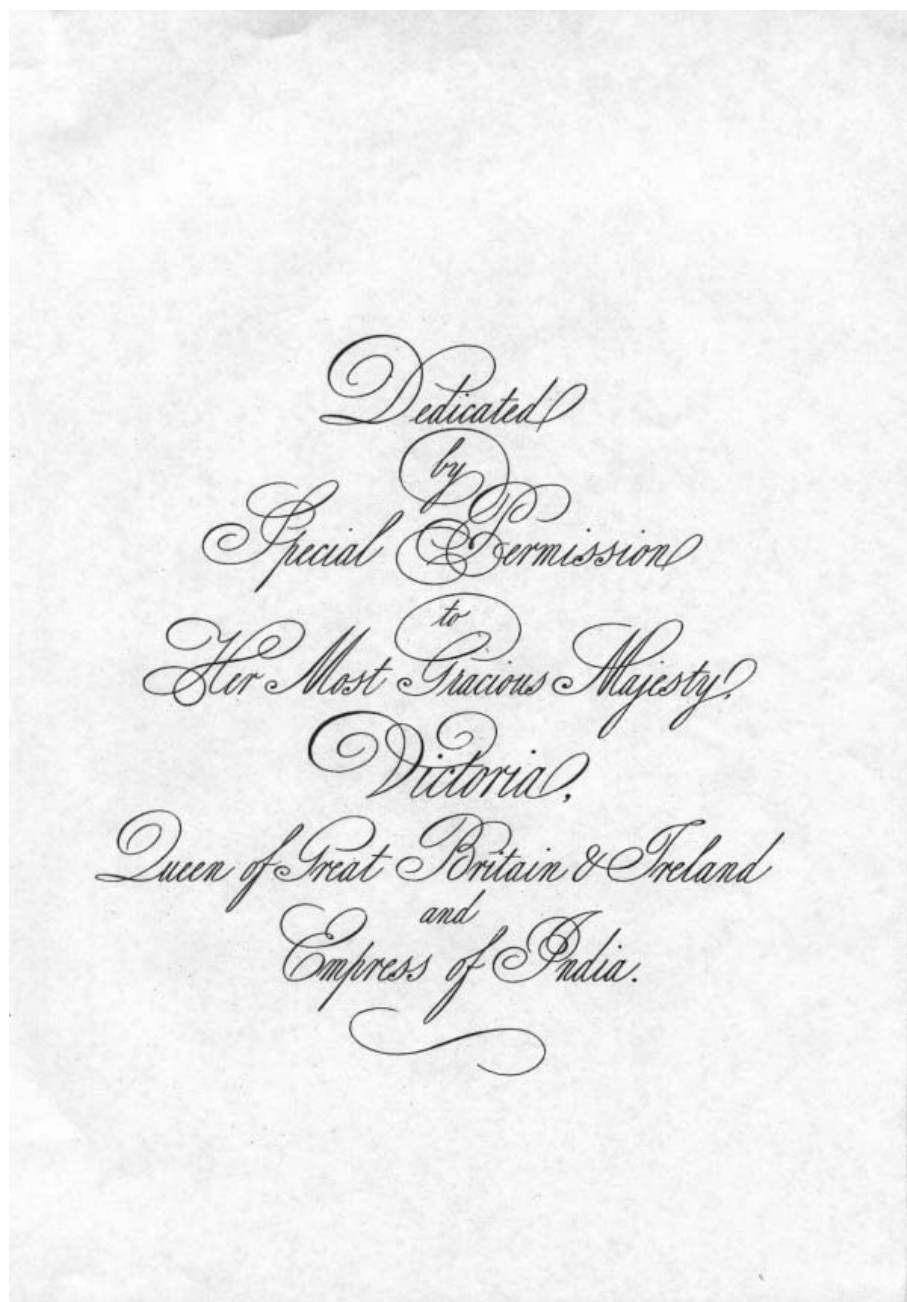 Dedicated
by
Special Permission
to
Her Most Gracious Majesty,
Victoria,
Queen of Great Britain & Ireland
and
Empress of India.